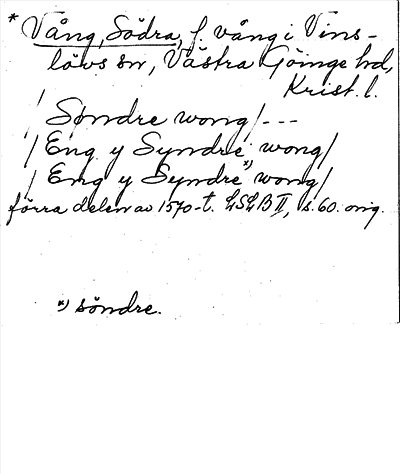 * Vång, Södra, f. vång i Vins-
lövs sn, Västra Göinge hd,
Krist. l.
/ Søndre wong / ---
/ Eng y Syndre *) wong /
/ Eng y Syndre wong /
förra delen av 1570-t. LSLB II, s. 60. orig.
*) söndre.